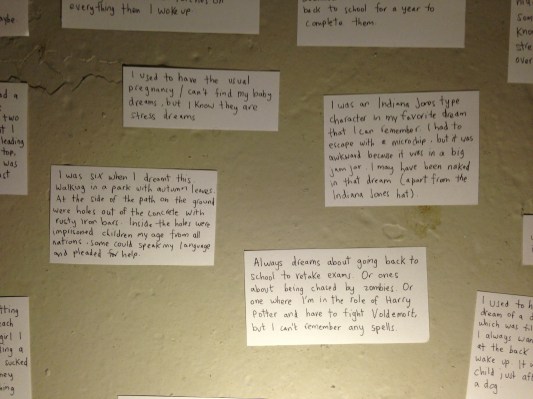 everything then I woke up.
back to school for a year to
complete them.
I used to have the usual
pregnancy / can't find my baby
dreams, but I know they are
stress dreams
I was an Indiana Jones type
character in my favorite dream
that I can remember. I had to
escape with a microchip, but it was
awkward because it was in a big
jam jar. I may have been naked
in that dream (apart from the
Indiana Jones hat).
I was six when I dreamt this
Walking in a park with autumn leaves.
At the side of the path on the ground
were holes out of the concrete with
rusty iron bars. Inside the holes were
imprisoned children my age from all
nations. Some could speak my language
and pleaded for help.
Always dreams about going back to
school to retake exams. Or ones
about being chased by zombies. Or
one where I'm in the role of Harry
Potter and have to fight Voldemort,
but I can't remember any spells.
two
leading
top,
was
over
sucked
I used to h
dream of a d
which was fil
I always wan
et the back
wake up. It w
child just aft
a dog